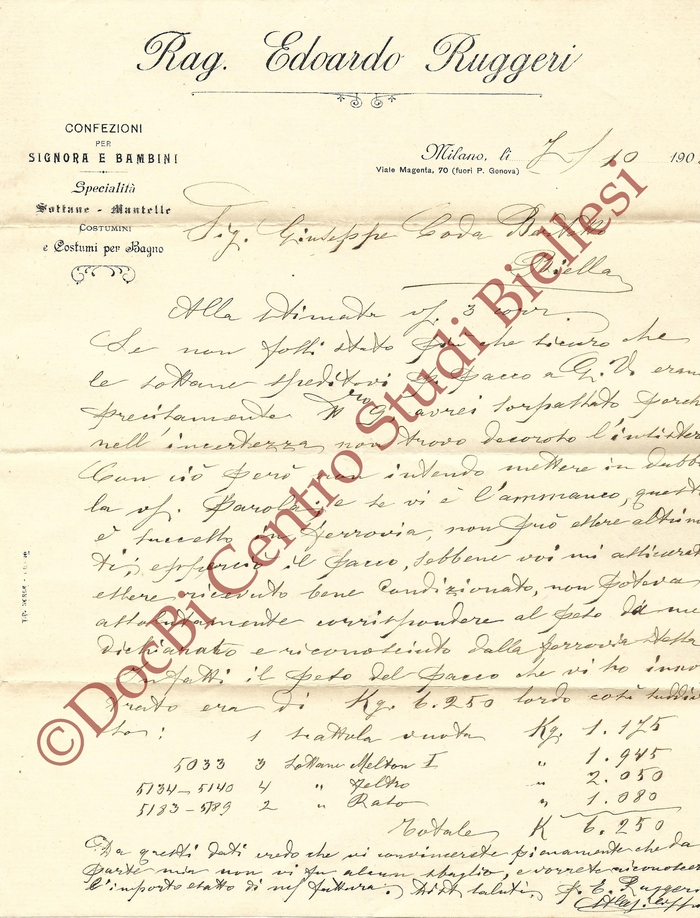 Rag. Edoardo Ruggeri
CONFEZIONI
PER
SIGNORA E BAMBINI
Specialità
Sottane - Mantelle
COSTUMINI
e Costumi per Bagno
Milano, li 7/10 190
Viale Magenta, 70 (fuori P. Genova)
Sig. Giuseppe Coda
Biella
Alla stimata vs. 3 corr.
Se non fossi stato più che sicuro che
le sottane speditevi a pacco a G. V. eran
precisamente N° 9, avrei sorpassato perch
nell'incertezza non trovo decoroso l'insister
Con ciò però non intendo mettere in dubb
la vs. parola; e se vi è l'ammanco, questi
è successo in ferrovia, non può essere altrim
ti, e perciò il pacco, sebbene voi mi assicurat
essere ricevuto bene condizionato, non poteva
assolutamente corrispondere al peso da me
dichiarato e riconosciuto dalla ferrovia stessa
Infatti il peso del pacco che vi ho inno
trato era di Kg. 6.250 lordo così suddivi
so:
1 scattola vuota Kg. 1.175
5033 3 Sottane Melton I " 1.945
5134-5140 4 " Feltro " 2.050
5183-5189 2 " Raso " 1.080
Totale K 6.250
Da questi dati credo che vi convincerete pienamente che da
parte mia non vi fu alcun sbaglio, e vorrete riconoscer
l'importo esatto di ms fattura. Dist saluti, p. E. Ruggeri
©DocBi Centro Studi Biellesi